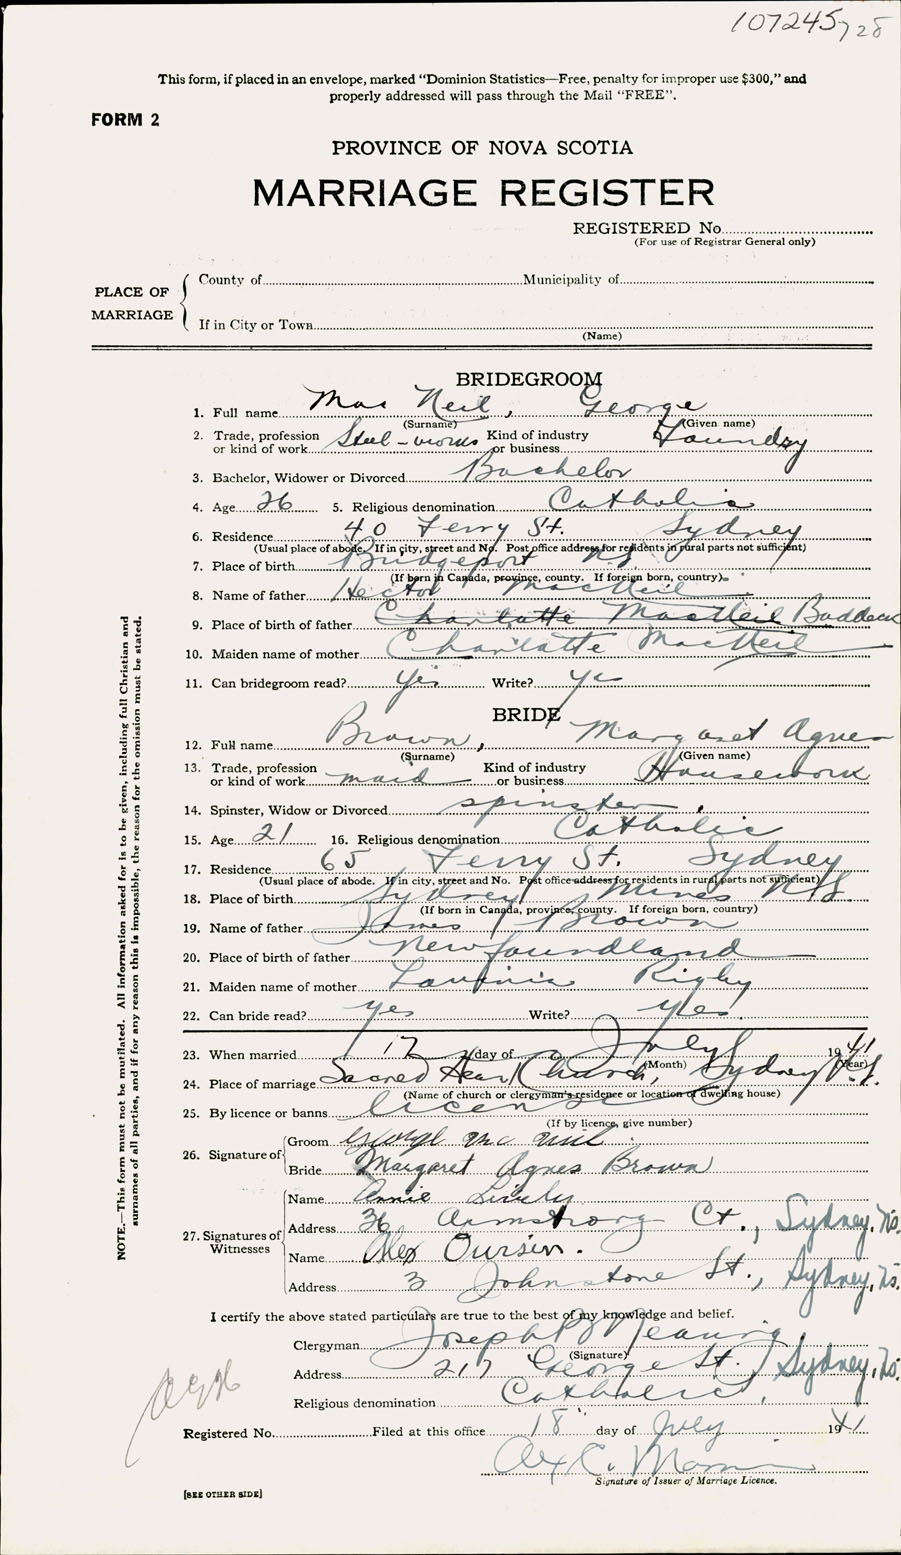 107245728
This form, if placed in an envelope, marked "Dominion Statistics—Free, penalty for improper use $300," and
properly addressed will pass through the Mail "FREE".
FORM 2
PROVINCE OF NOVA SCOTIA
MARRIAGE REGISTER
REGISTERED No.
(For use of Registrar General only)
PLACE OF MARRIAGE
County of Municipality of
If in City or Town
(Name)
BRIDEGROOM
1. Full name Mac Neil, George
(Surname) (Given name)
2. Trade, profession or kind of work Steel-works Kind of industry or business Foundry
3. Bachelor, Widower or Divorced Bachelor
4. Age 26 5. Religious denomination Catholic
6. Residence 40 Ferry St. Sydney
(Usual place of abode. If in city, street and No. Post office address for residents in rural parts not sufficient)
7. Place of birth Bridgeport N.S.
(If born in Canada, province, county. If foreign born, country)
8. Name of father Hector MacNeil
9. Place of birth of father Charlotte MacNeil Baddeck
10. Maiden name of mother Charlotte MacNeil
11. Can bridegroom read? Yes Write? Yes
BRIDE
12. Full name Brown, Margaret Agnes
(Surname) (Given name)
13. Trade, profession or kind of work maid Kind of industry or business Housework
14. Spinster, Widow or Divorced spinster.
15. Age 21 16. Religious denomination Catholic
17. Residence 65 Ferry St. Sydney
(Usual place of abode. If in city, street and No. Post office address for residents in rural parts not sufficient)
18. Place of birth Sydney Mines N.S.
(If born in Canada, province, county. If foreign born, country)
19. Name of father James Brown
20. Place of birth of father Newfoundland
21. Maiden name of mother Lavinia Rigby
22. Can bride read? yes Write? yes.
23. When married 17 day of July 1941
(Month) (Year)
24. Place of marriage Sacred Heart Church, Sydney N.S.
(Name of church or clergyman's residence or location of dwelling house)
25. By licence or banns license
(If by licence, give number)
26. Signature of Groom George Mc Neil
Bride Margaret Agnes Brown
27. Signatures of Witnesses
Name Annie
Address 36 Armstrong Ct., Sydney, N.S.
Name Alex
Address 3 Johnstone St., Sydney, N.S.
I certify the above stated particulars are true to the best of my knowledge and belief.
Clergyman Joseph
(Signature)
Address 217 George St. Sydney, N.S.
Religious denomination Catholic,
Registered No. Filed at this office 18 day of July 1941
Alex C.
Signature of Issuer of Marriage Licence.
[SEE OTHER SIDE]
NOTE.—This form must not be mutilated. All information asked for is to be given, including full Christian and
surnames of all parties, and if for any reason this is impossible, the reason for the omission must be stated.